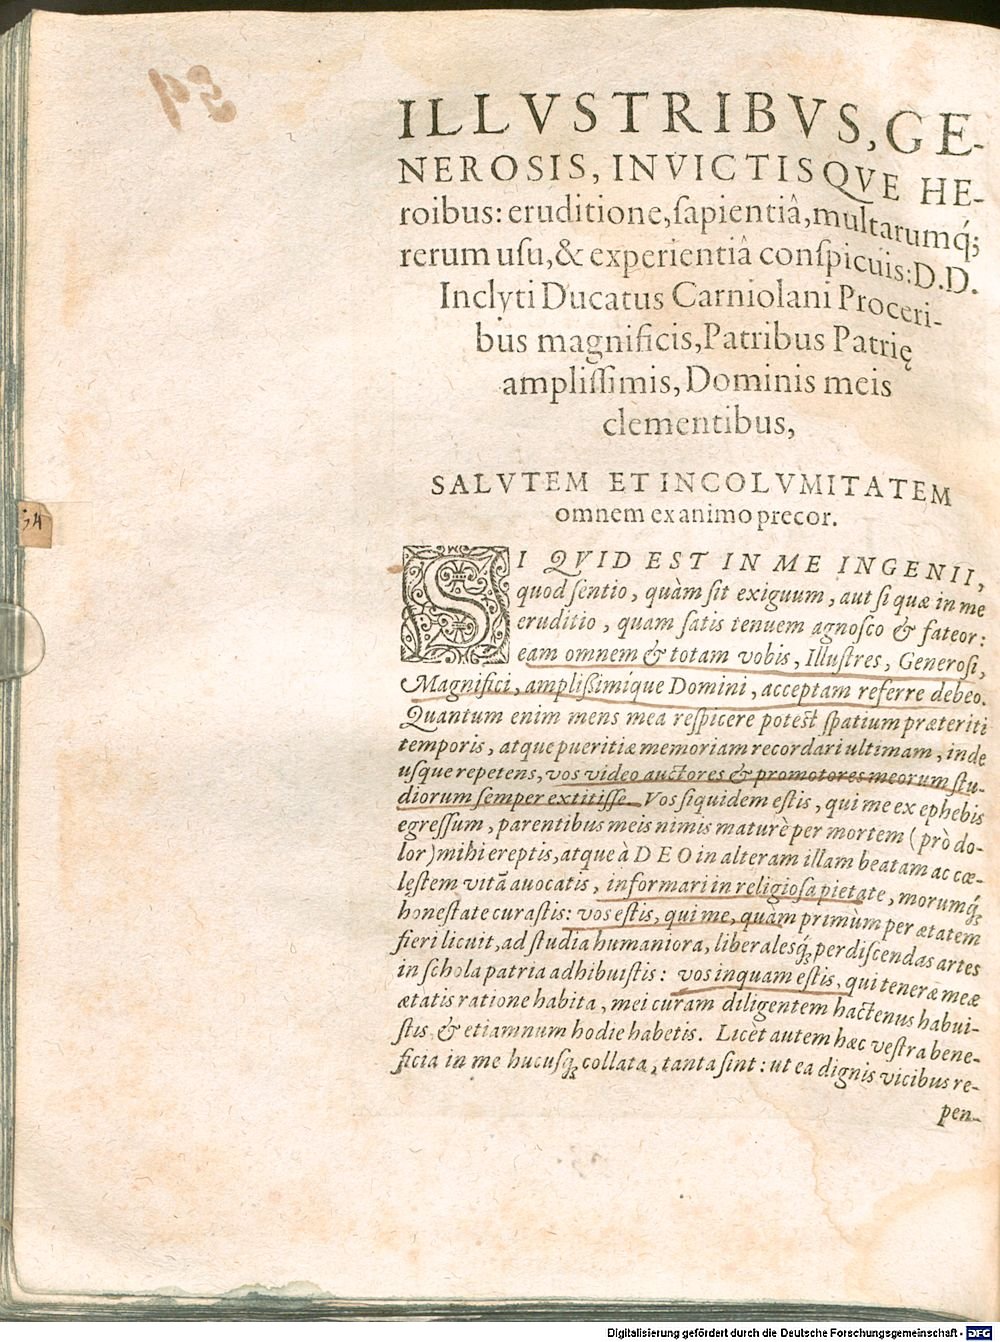 59
ILLVSTRIBVS, GE-
NEROSIS, INVICTISQVE HE-
roibus: eruditione, ſapientiâ, multarumq́;
rerum uſu, & experientiâ conſpicuis: D.D.
Inclyti Ducatus Carniolani Proceri-
bus magnificis, Patribus Patrię
ampliſſimis, Dominis meis
clementibus,
SALVTEM ET INCOLVMITATEM
omnem ex animo precor.
SI QVID EST IN ME INGENII,
quod ſentio, quàm ſit exiguum, aut ſi quæ in me
eruditio, quam ſatis tenuem agnoſco & fateor:
eam omnem & totam vobis, Illuſtres, Generoſi,
Magnifici, ampliſſimique Domini, acceptam referre debeo.
Quantum enim mens mea reſpicere poteſt ſpatium præteriti
temporis, atque pueritiæ memoriam recordari ultimam, inde
uſque repetens, vos video auctores & promotores meorum ſtu-
diorum ſemper extitiſſe. Vos ſiquidem eſtis, qui me ex ephebis
egreſſum, parentibus meis nimis maturè per mortem (prò do-
lor) mihi ereptis, atque à DEO in alteram illam beatam ac cœ-
leſtem vitã avocatis, informari in religioſa pietate, morumq́;
honeſtate curaſtis: vos eſtis, qui me, quàm primùm per ætatem
fieri licuit, ad ſtudia humaniora, liberalesq́; perdiſcendas artes
in ſchola patria adhibuiſtis: vos inquam eſtis, qui teneræ meæ
ætatis ratione habita, mei curam diligentem hactenus habui-
ſtis & etiamnum hodie habetis. Licèt autem hæc veſtra bene-
ficia in me hucuſq; collata, tanta ſint: ut ea dignis vicibus re-
pen-
34
Digitalisierung gefördert durch die Deutsche Forschungsgemeinschaft - DFG